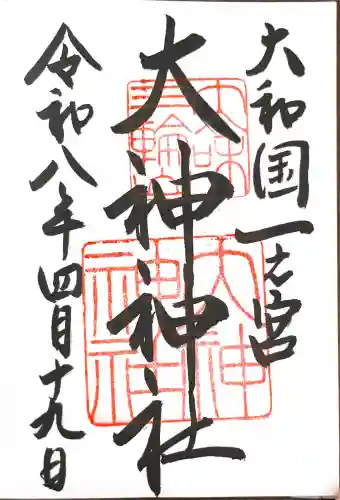 大和国一之宮
大神神社
令和八年四月十九日
大神
神社